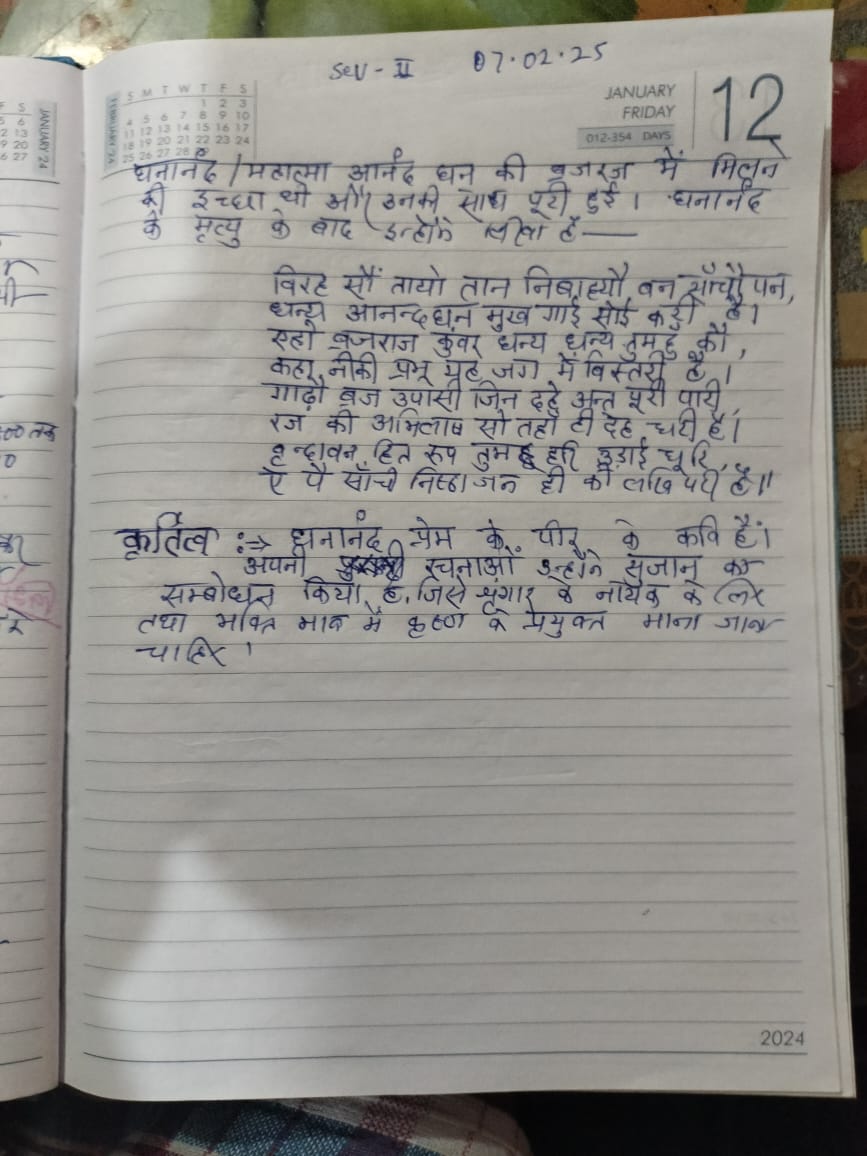 Sev - II 07.02.25
JANUARY
FRIDAY
12
012-354 DAYS
FEBRUARY 24
S M T W T F S
1 2 3
4 5 6 7 8 9 10
11 12 13 14 15 16 17
18 19 20 21 22 23 24
25 26 27 28 29
JANUARY 24
घनानंद / महात्मा आनंद घन की ब्रजरज में मिलने
की इच्छा थी और उनकी साध पूरी हुई। घनानंद
के मृत्यु के बाद इन्होंने लिखा है —
विरह सौं तायो तान निबाह्यौ बन साँचौ पन,
धन्य आनन्दघन मुख गाई सोई करी है।
एहो ब्रजराज कुंवर धन्य धन्य तुमहु कौ,
कहा नीकी प्रभु यह जग में विस्तरी है।
गाढ़ौ ब्रज उपासी जिन देह अन्त पूरी पारी,
रज की अभिलाष सो तहाँ ही देह धरी है।
वृन्दावन हित रूप तुमहु हरि उड़ाई धूरि,
ऐ पै साँची निष्ठा जन ही की लखि परी है॥
कृर्तित्व :→ घनानंद प्रेम के पीर के कवि हैं।
अपनी रचनाओं उन्होंने सुजान का
सम्बोधन किया है, जिसे श्रृंगार के नायक के लिए
तथा भक्ति भाव में कृष्ण के प्रयुक्त माना जाना
चाहिए।
2024